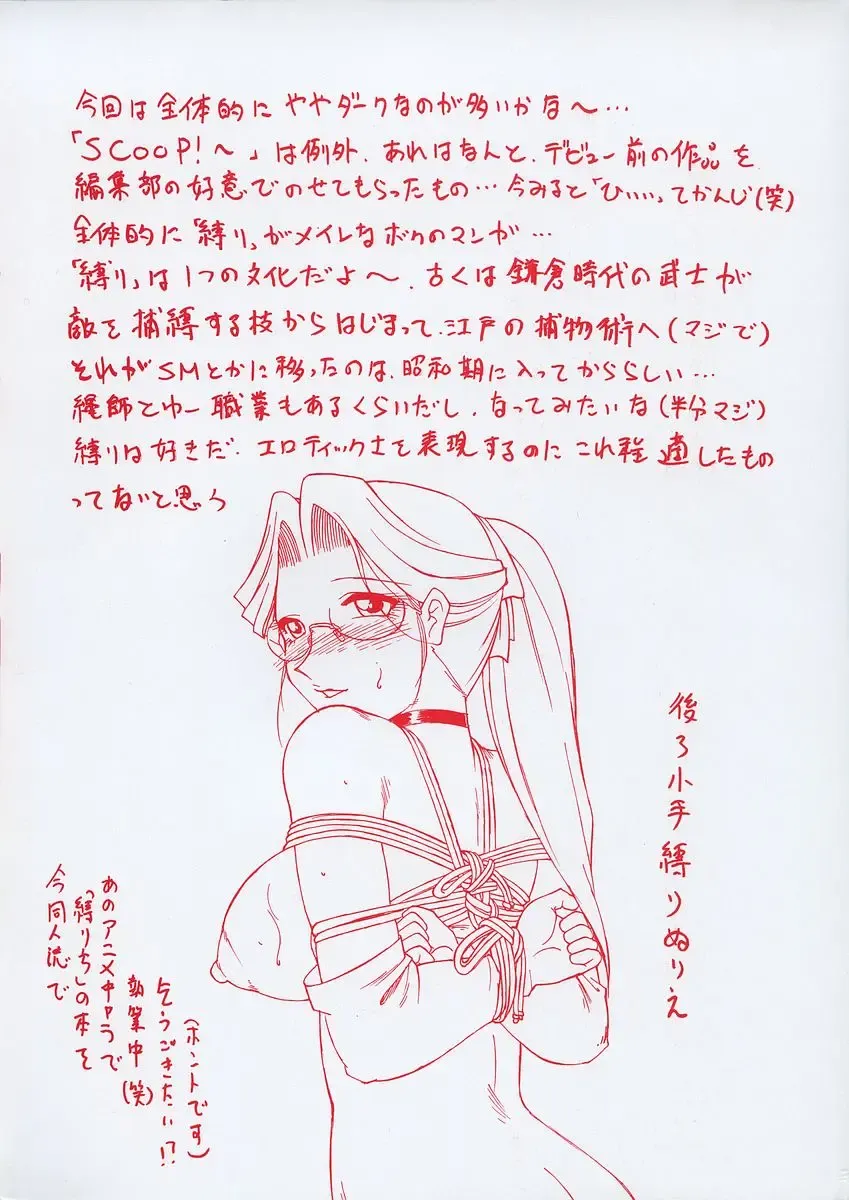 今回は全体的に ややダークなのが多いかな〜…
「SCOOP!〜」は例外、あれはなんと、デビュー前の作品を
編集部の好意でのせてもらったもの…今みると「ひぃぃ」てかんじ(笑)
全体的に「縛り」がメイレなボクのマンガ…
「縛り」は1つの文化だよ〜、古くは鎌倉時代の武士が
敵を捕縛する技からはじまって、江戸の捕物術へ(マジで)
それがSMとかに移ったのは、昭和期に入ってかららしい…
縄師とゆー職業もあるくらいだし、なってみたいな(半分マジ)
縛りは好きだ、エロティックさを表現するのにこれ程適したもの
ってないと思う
後ろ小手縛りぬりえ
今同人流で
「縛りもし」の本を
あのアニメキャラで
執筆中(笑)
乞うごきたい!?
(ホントです)